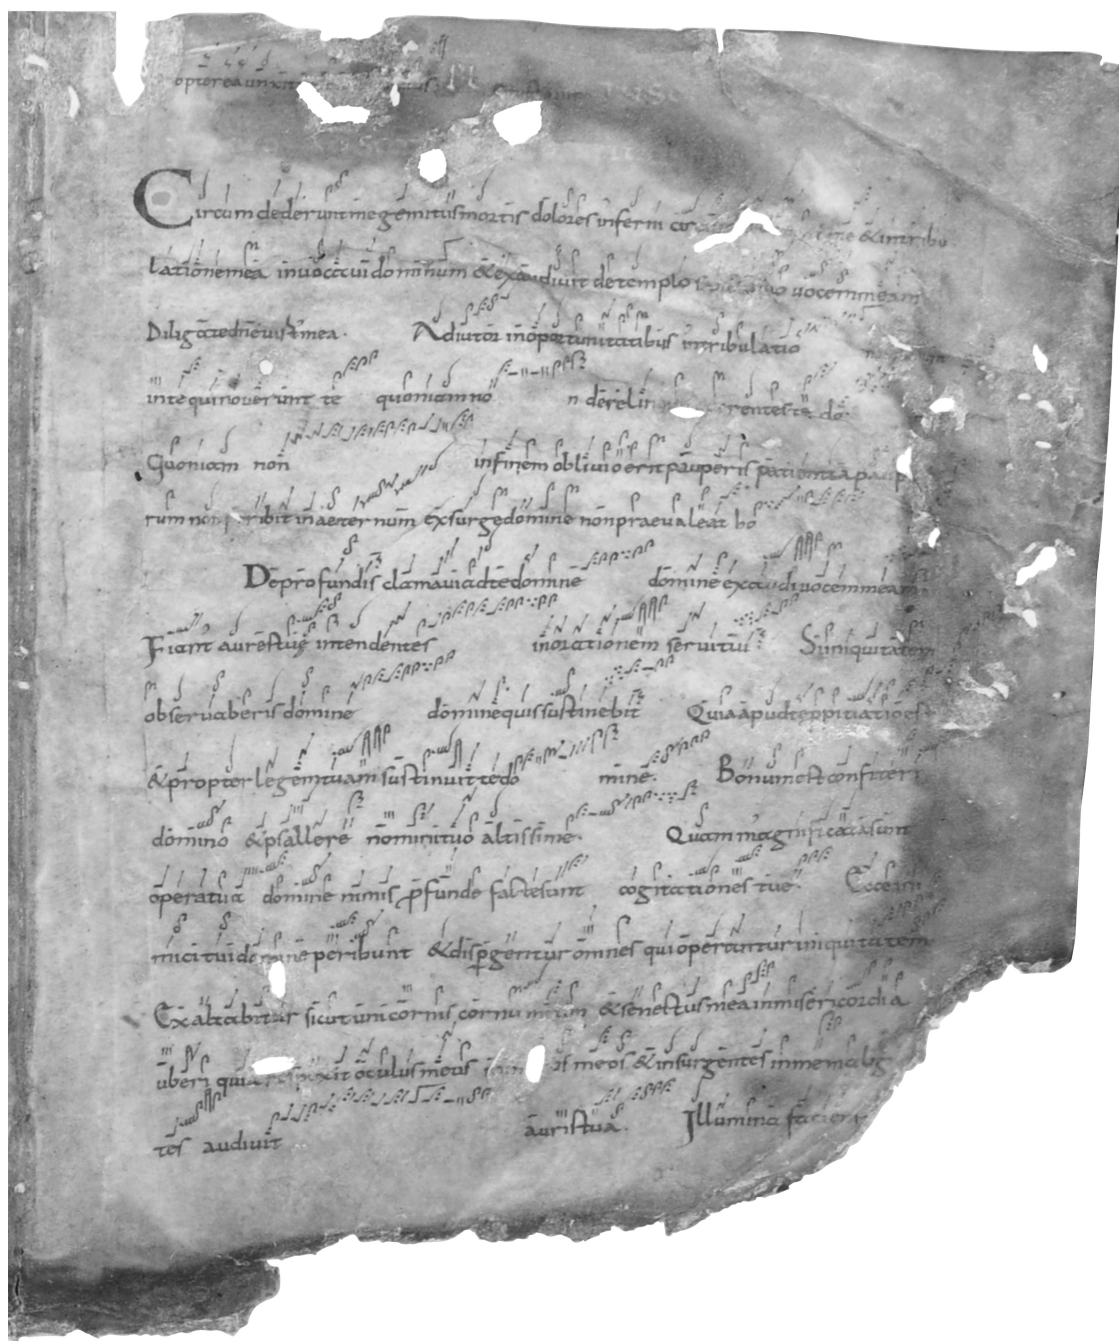 optereaunxit
Circumdederunt me gemitus mortis dolores inferni circum me & intribu
latione mea inuocaui dominum & exaudiuit de templo uocem meam
Diligate dne uirt mea. Adiutor in oportunitatibus intribulatio
inte qui nouerunt te quoniam no n derelin rentes te do
Quoniam non infinem obliuio erit pauperis patientia paup
rum non peribit in aeternum exsurge domine non praeualeat ho
De profundis clamaui ad te domine domine exaudi uocem meam
Fiant aures tue intendentes in orationem serui tui Si iniquitatem
obseruaberis domine domine quis sustinebit Quia apud te ppitiatio est
& propter legem tuam sustinuit te do mine. Bonum est confiteri
domino & psallere nomini tuo altissime. Quam magnificata sunt
opera tua domine nimis pfunde facte sunt cogitationes tue. Ecce ini
mici tui domine peribunt & dispgentur omnes qui operantur iniquitatem
Exaltabitur sicut unicornis cornu meum & senectus mea in misericordia
uberi quia respexit oculus meus meos & insurgentes in me malig
tes audiuit auris tua. Illumina faciem